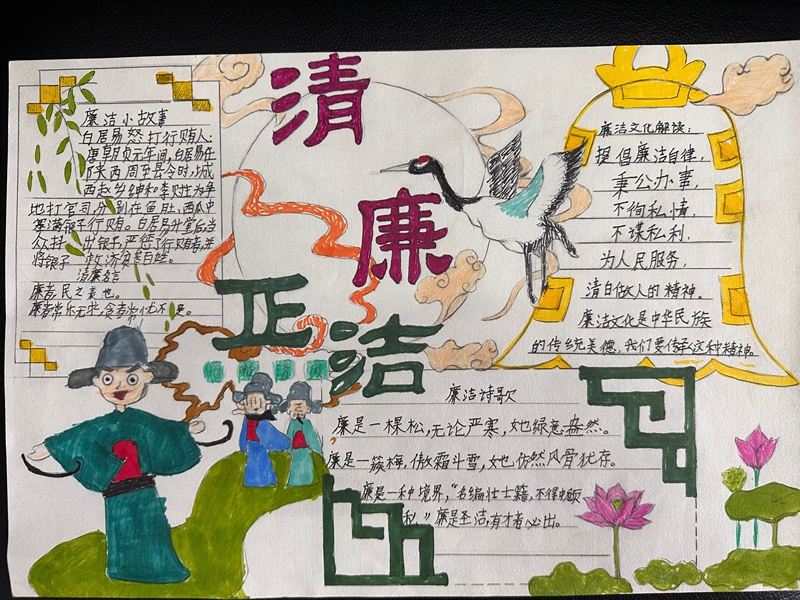 清
廉
正
洁
廉洁小故事
白居易怒打行贿人:
唐朝贞元年间,白居易任
陕西周至县令时,城
西赵乡绅和李财主为争
地打官司,分别在鱼肚、西瓜中
塞满银子行贿。白居易升堂后,当
众抖出银子,严惩了行贿者,并
将银子
济贫苦百姓。
清廉名言
廉者,民之表也。
廉者常乐无求,贪者常忧不足。
廉洁文化解读:
提倡廉洁自律,
秉公办事,
不徇私情,
不谋私利,
为人民服务,
清白做人的精神。
廉洁文化是中华民族
的传统美德,我们要传承这种精神。
廉洁诗歌
廉是一棵松,无论严寒,她绿意盎然。
廉是一簇梅,傲霜斗雪,她仍然风骨犹存。
廉是一种境界,“名编壮士籍,不得中顾
私”廉是圣洁,有才者必出。